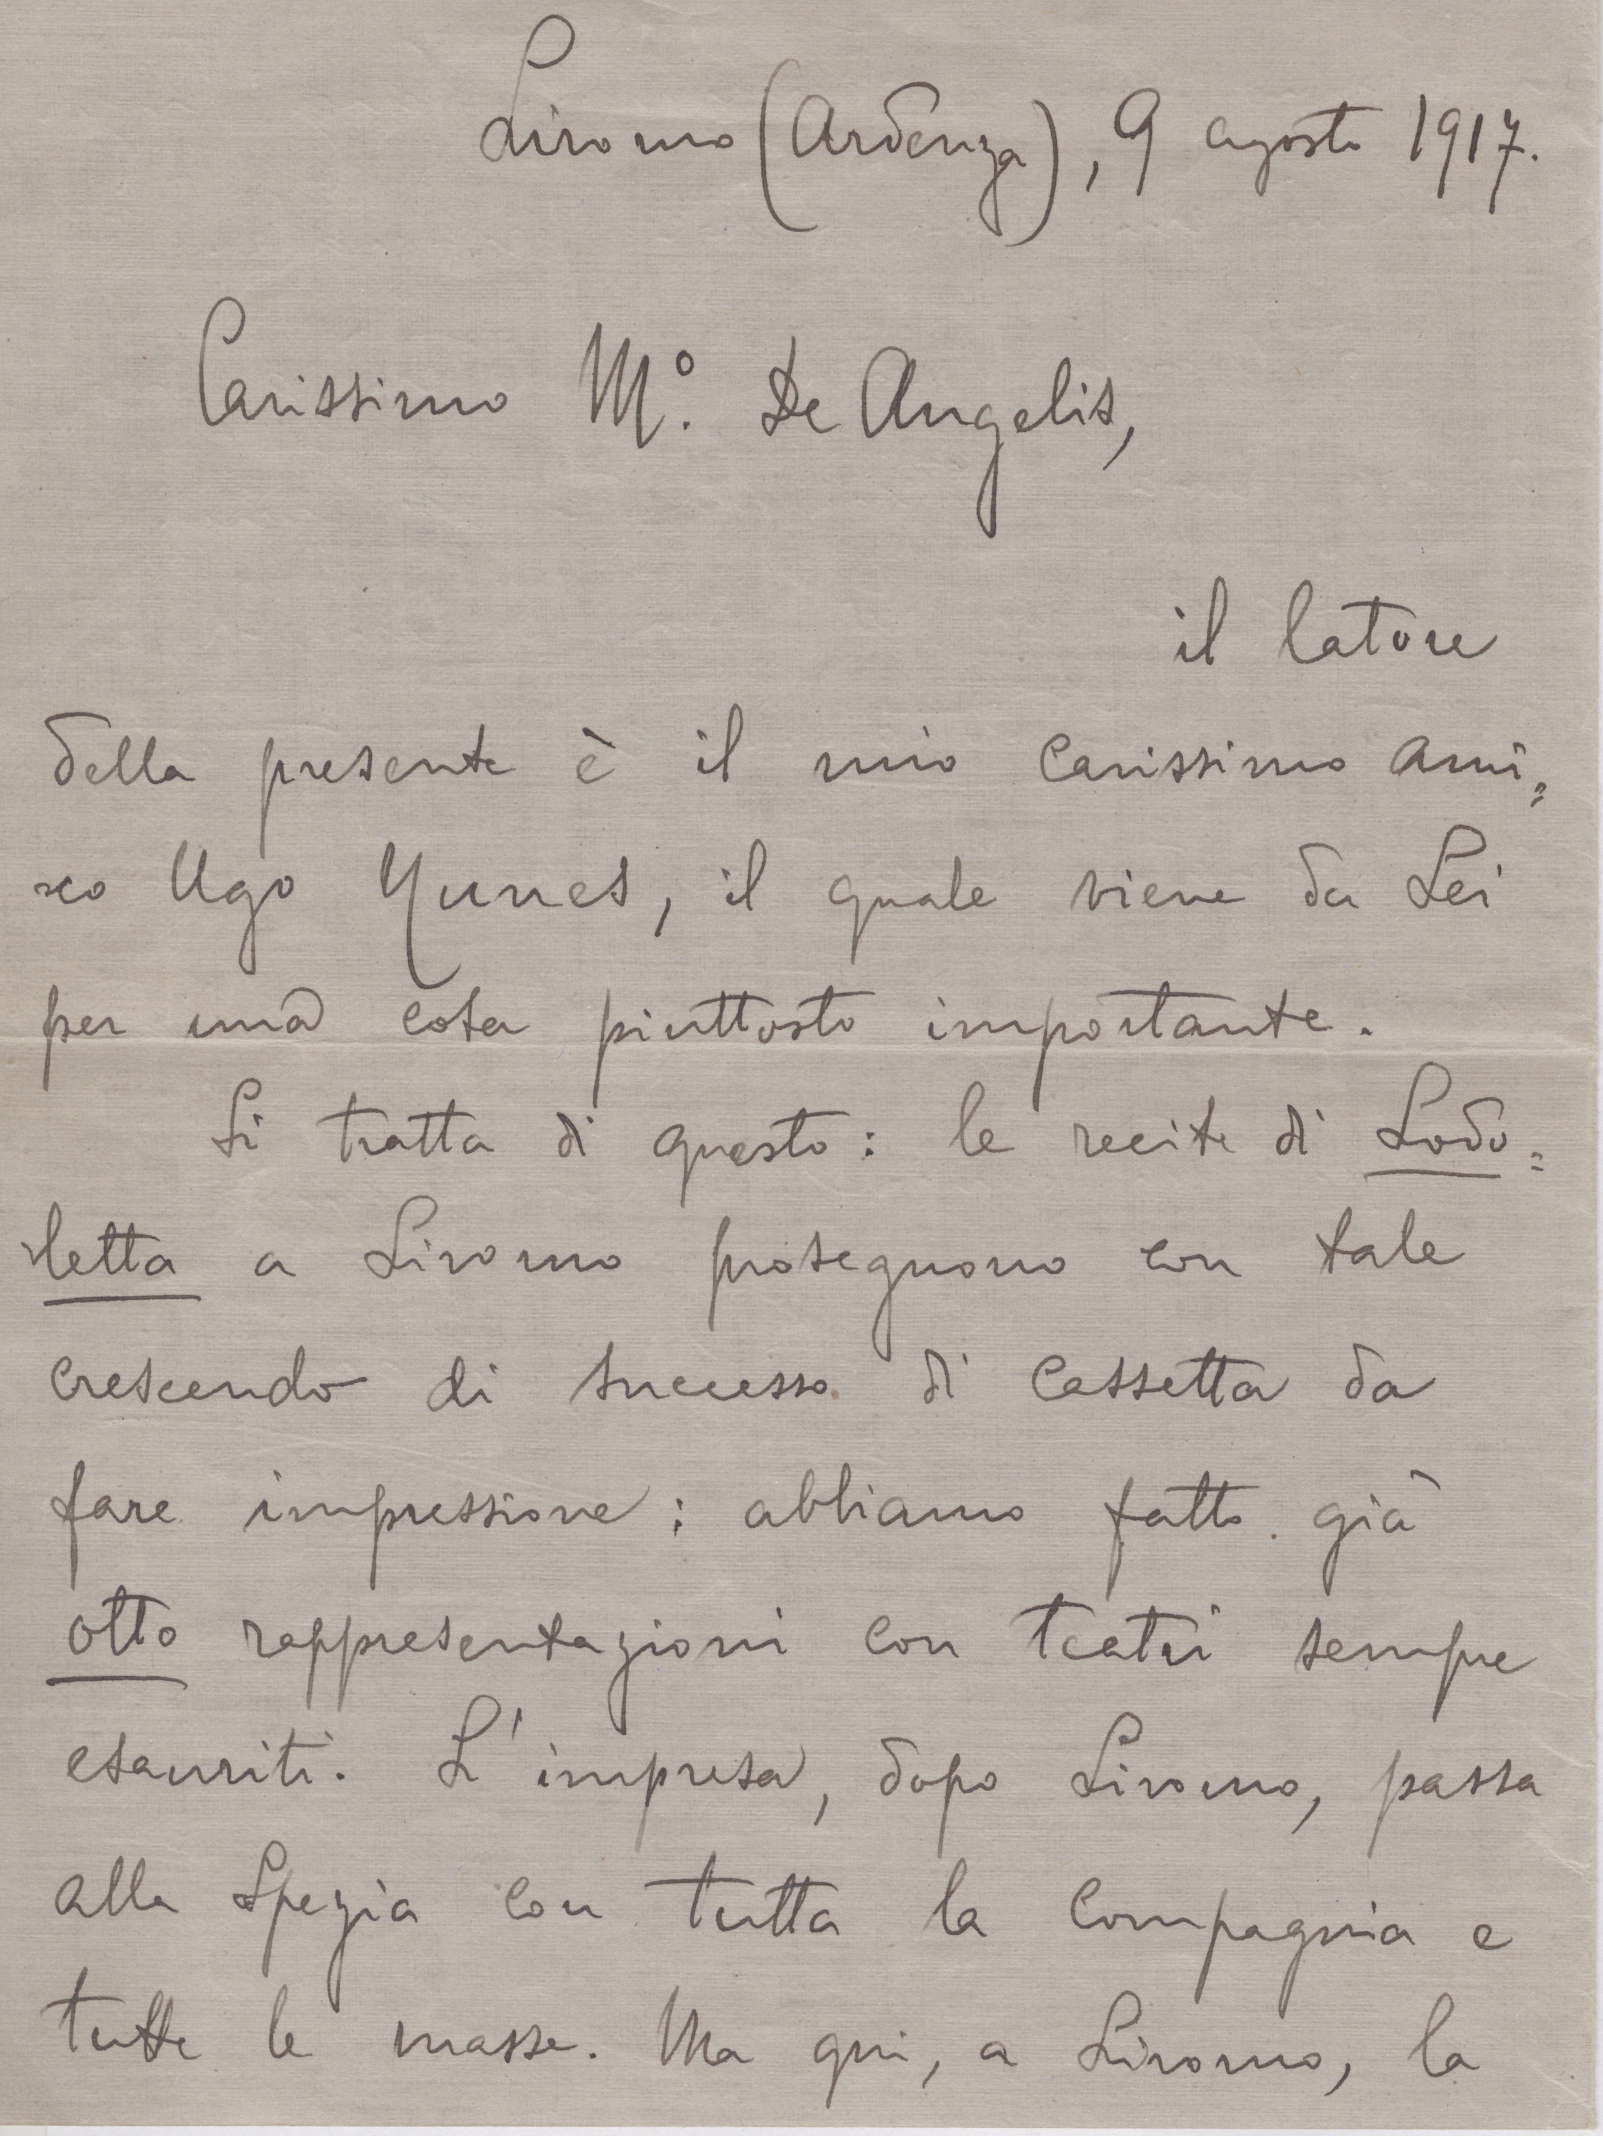 Livorno (Ardenza), 9 agosto 1917.
Carissimo M.° De Angelis,
il latore
della presente è il mio carissimo ami=
co Ugo Yunes, il quale viene da Lei
per una cosa piuttosto importante.
Si tratta di questo: le recite di Lodo=
letta a Livorno proseguono con tale
crescendo di successo di cassetta da
fare impressione: abbiamo fatto già
otto rappresentazioni con teatri sempre
esauriti. L'impresa, dopo Livorno, passa
alla Spezia con tutta la compagnia e
tutte le masse. Ma qui, a Livorno, la